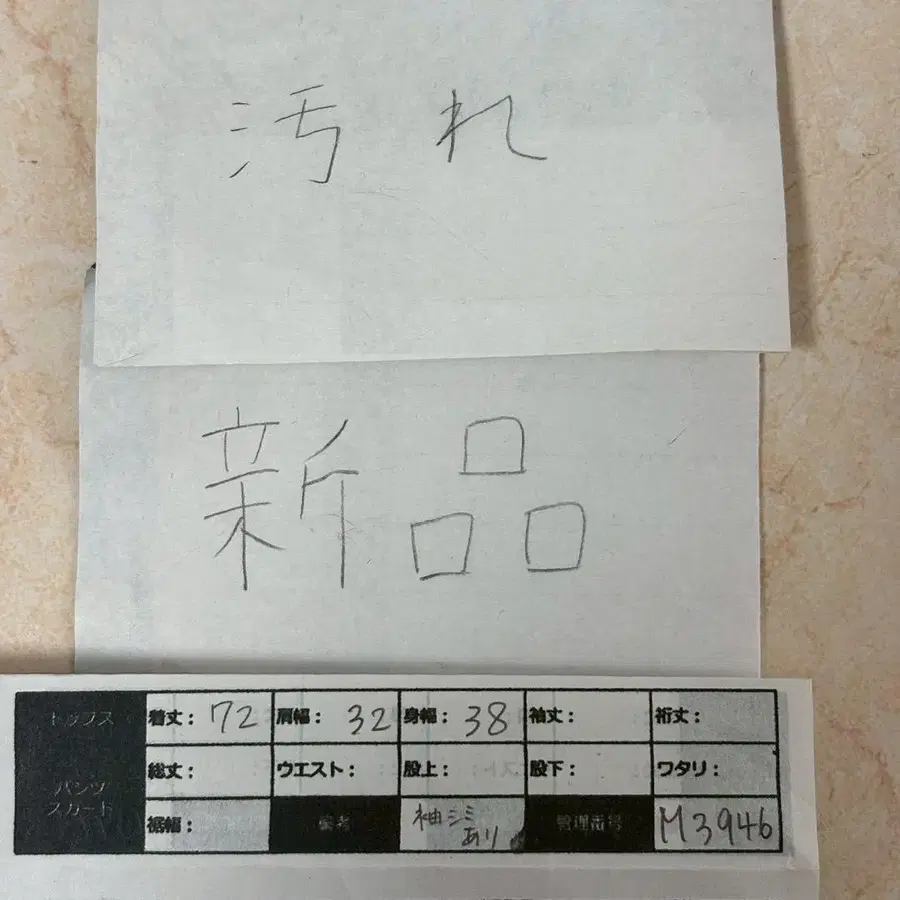 汚れ
新品
トップス 着丈： 72 肩幅： 32 身幅： 38 袖丈： 裄丈：
パンツ スカート 総丈： ウエスト： 股上： 股下： ワタリ：
裾幅： 備考 袖シミあり 管理番号 M3946